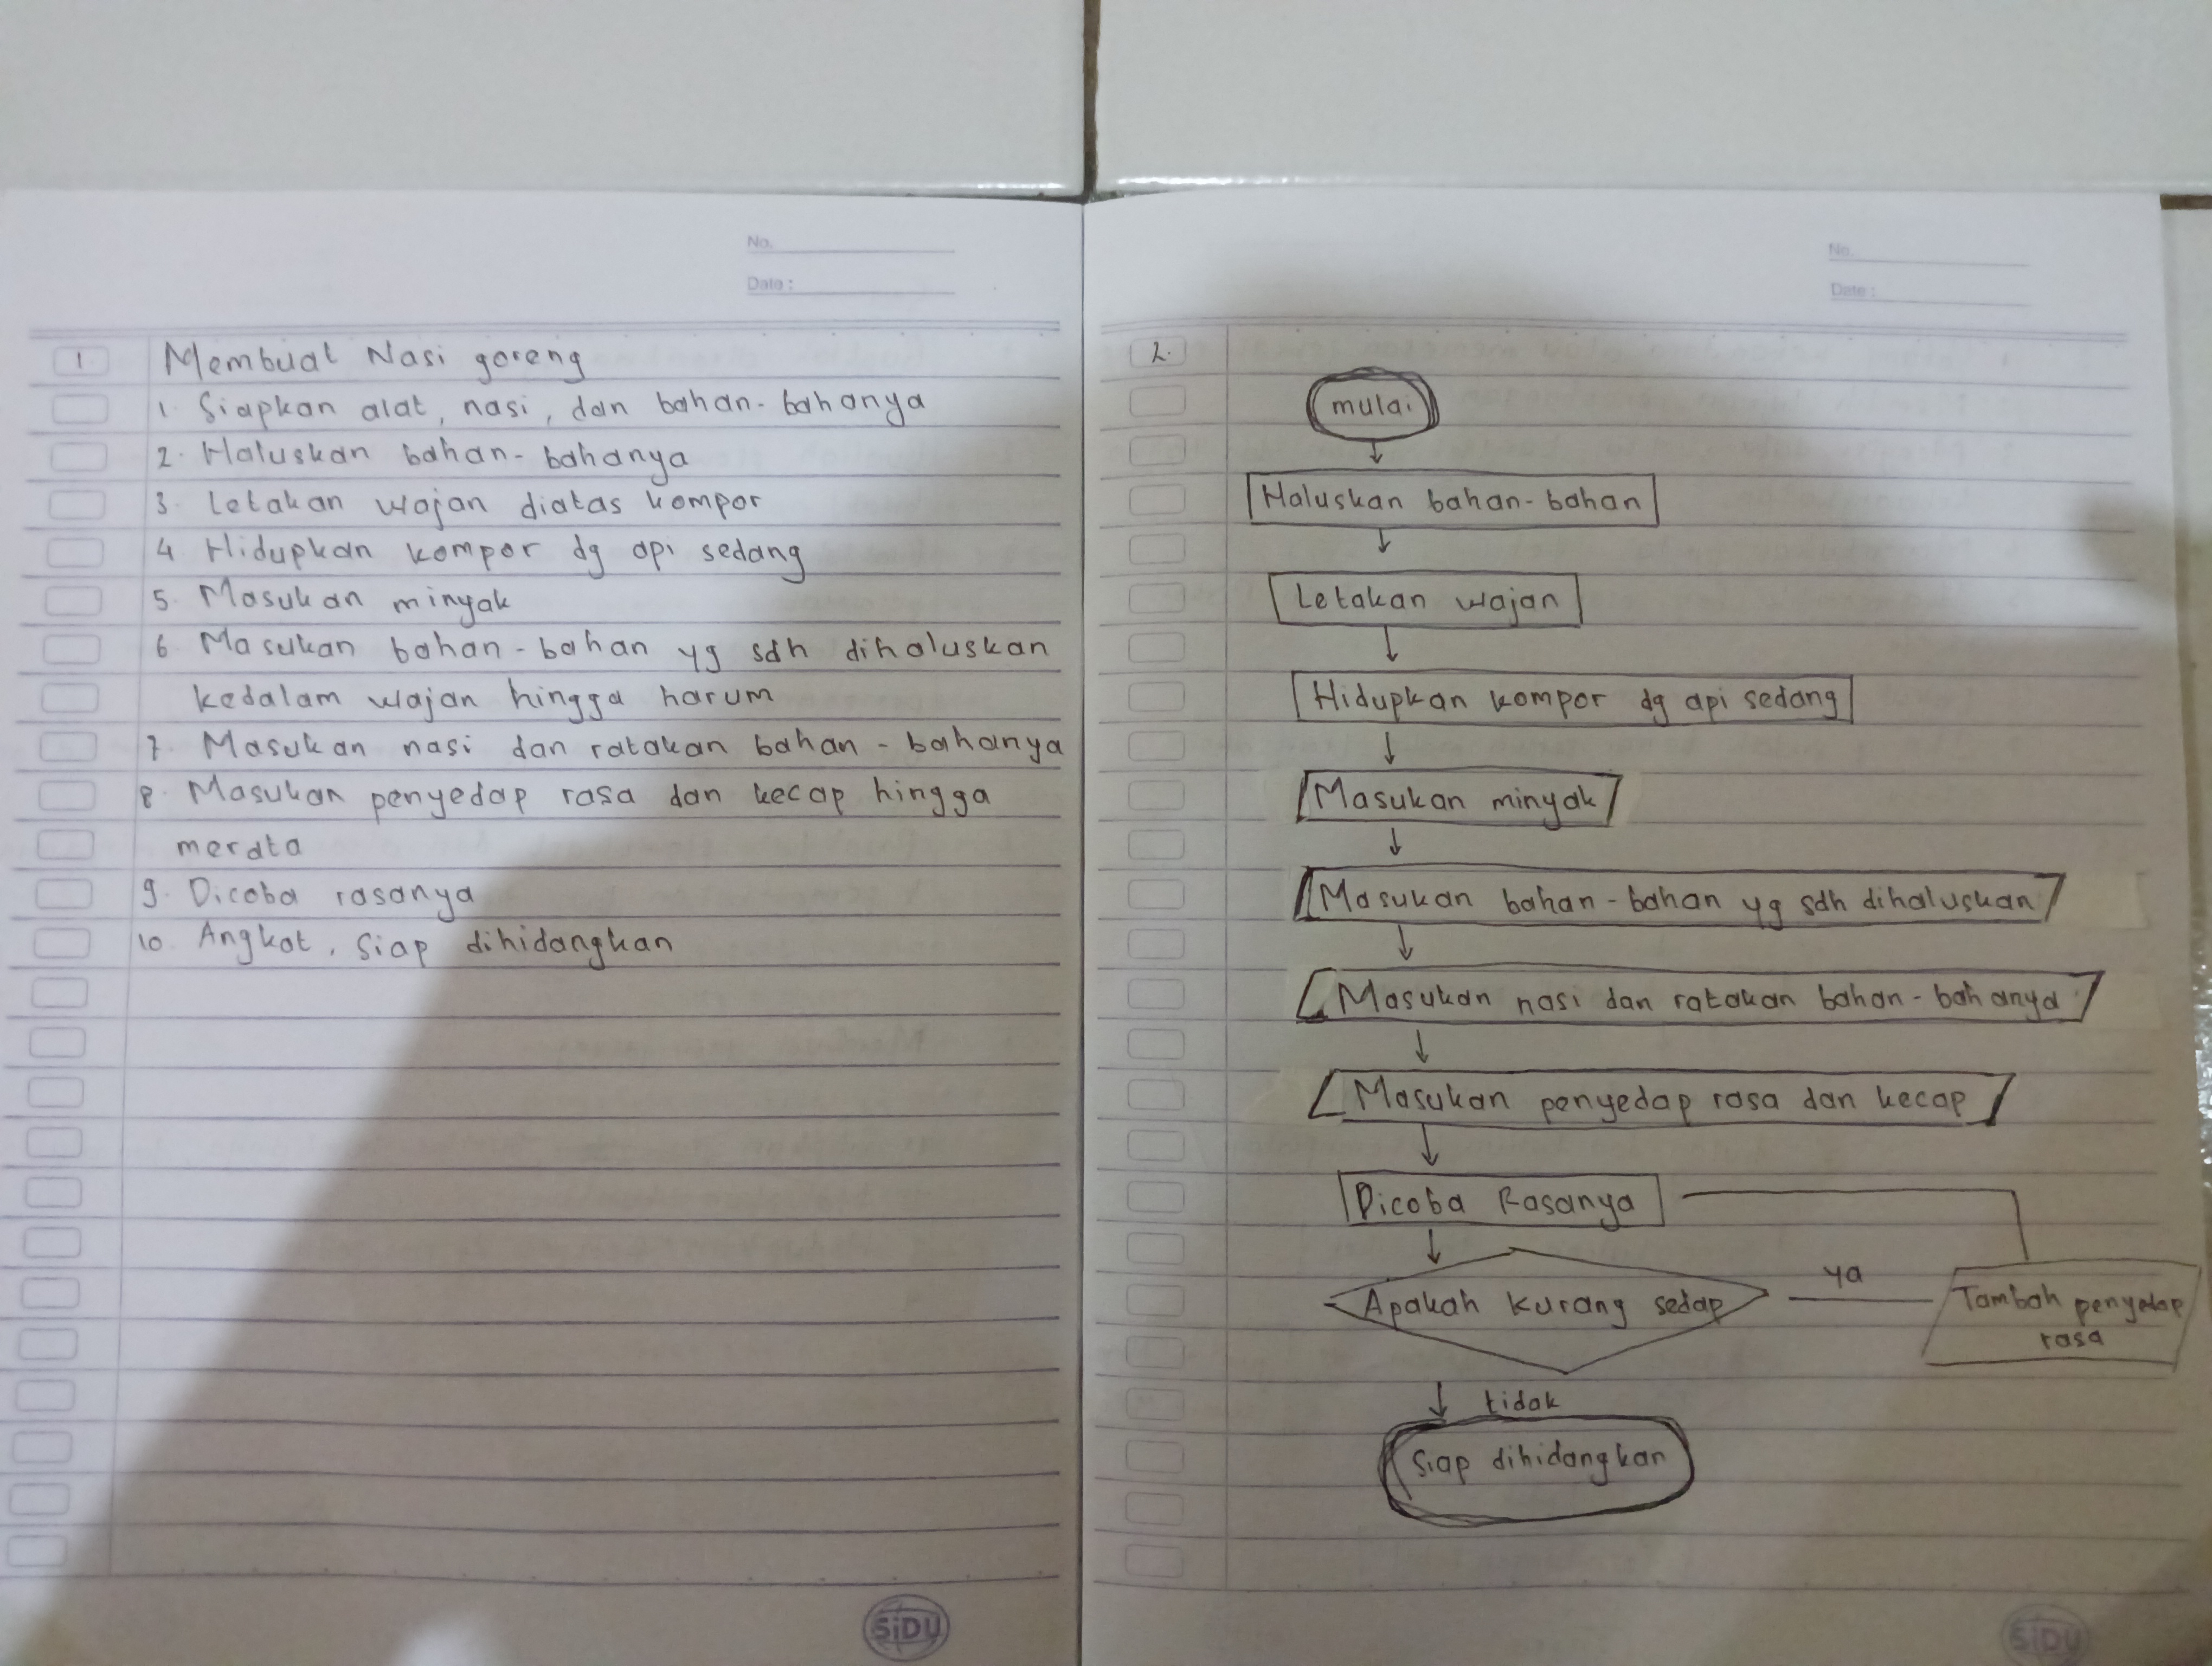 No.
Date :
1. Membuat Nasi goreng
1. Siapkan alat, nasi, dan bahan-bahanya
2. Haluskan bahan-bahanya
3. Letakan wajan diatas kompor
4 Hidupkan kompor dg api sedang
5. Masukan minyak
6 Masukan bahan-bahan yg sdh dihaluskan
kedalam wajan hingga harum
7. Masukan nasi dan ratakan bahan-bahanya
8. Masukan penyedap rasa dan kecap hingga
merata
9. Dicoba rasanya
10. Angkat, siap dihidangkan
SiDU
No.
Date :
2.
mulai
Haluskan bahan-bahan
Letakan wajan
Hidupkan kompor dg api sedang
Masukan minyak
Masukan bahan-bahan yg sdh dihaluskan
Masukan nasi dan ratakan bahan-bahanya
Masukan penyedap rasa dan kecap
Dicoba Rasanya
Apakah kurang sedap
ya
Tambah penyedap
rasa
tidak
Siap dihidangkan
SiDU